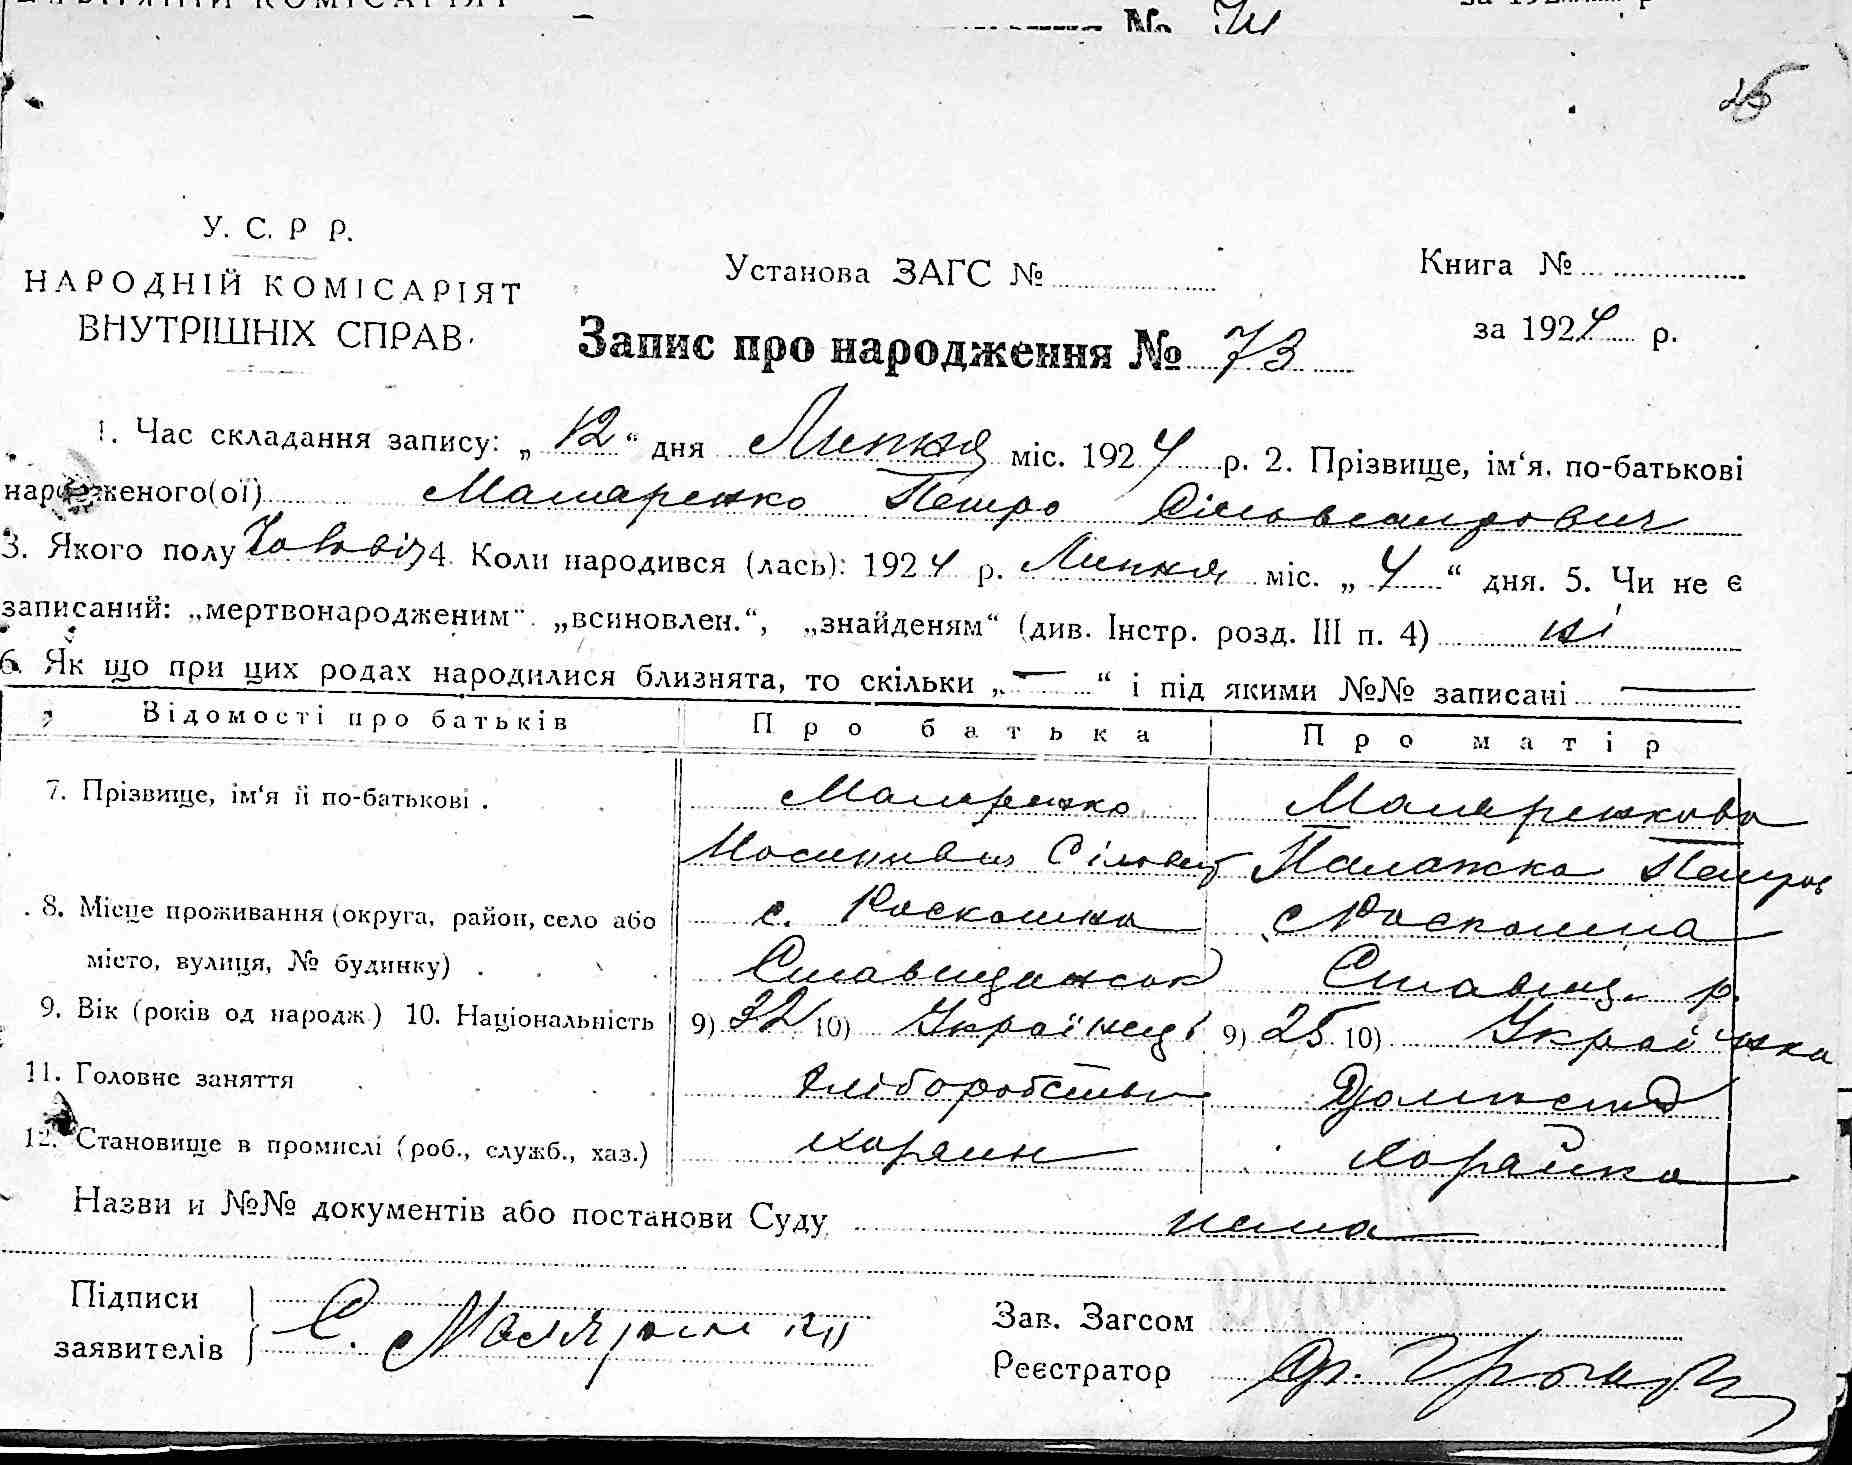 № 74
25
У. С. Р Р.
НАРОДНІЙ КОМІСАРІЯТ
ВНУТРІШНІХ СПРАВ.
Установа ЗАГС №
Книга №
за 1924 р.
Запис про народження № 73
1. Час складання запису: „12“ дня Липня міс. 1924 р. 2. Прізвище, ім‘я, по-батькові
народженого(ої) Маляренко Петро
3. Якого полу 4. Коли народився (лась): 1924 р. Липня міс. „4“ дня. 5. Чи не є
записаний: „мертвонародженим“. „всиновлен.“, „знайденям“ (див. Інстр. розд. III п. 4) ні
6. Як що при цих родах народилися близнята, то скільки „—“ і під якими №№ записані —
Відомості про батьків Про батька Про матір
7. Прізвище, ім‘я її по-батькові . Маляренко Маляренкова
Палажка Петров
8. Місце проживання (округа, район, село або с. Роскошна с Роскошна
місто, вулиця, № будинку) . Ставищанськ Ставищ. р.
9. Вік (років од народж.) 10. Національність 9) 32 10) Українець 9) 25 10) Українка
11. Головне заняття
12. Становище в промислі (роб., служб., хаз.) хазяин хазяйка
Назви и №№ документів або постанови Суду нема
Підписи
заявителів
С. Маляренко
Зав. Загсом
Реєстратор